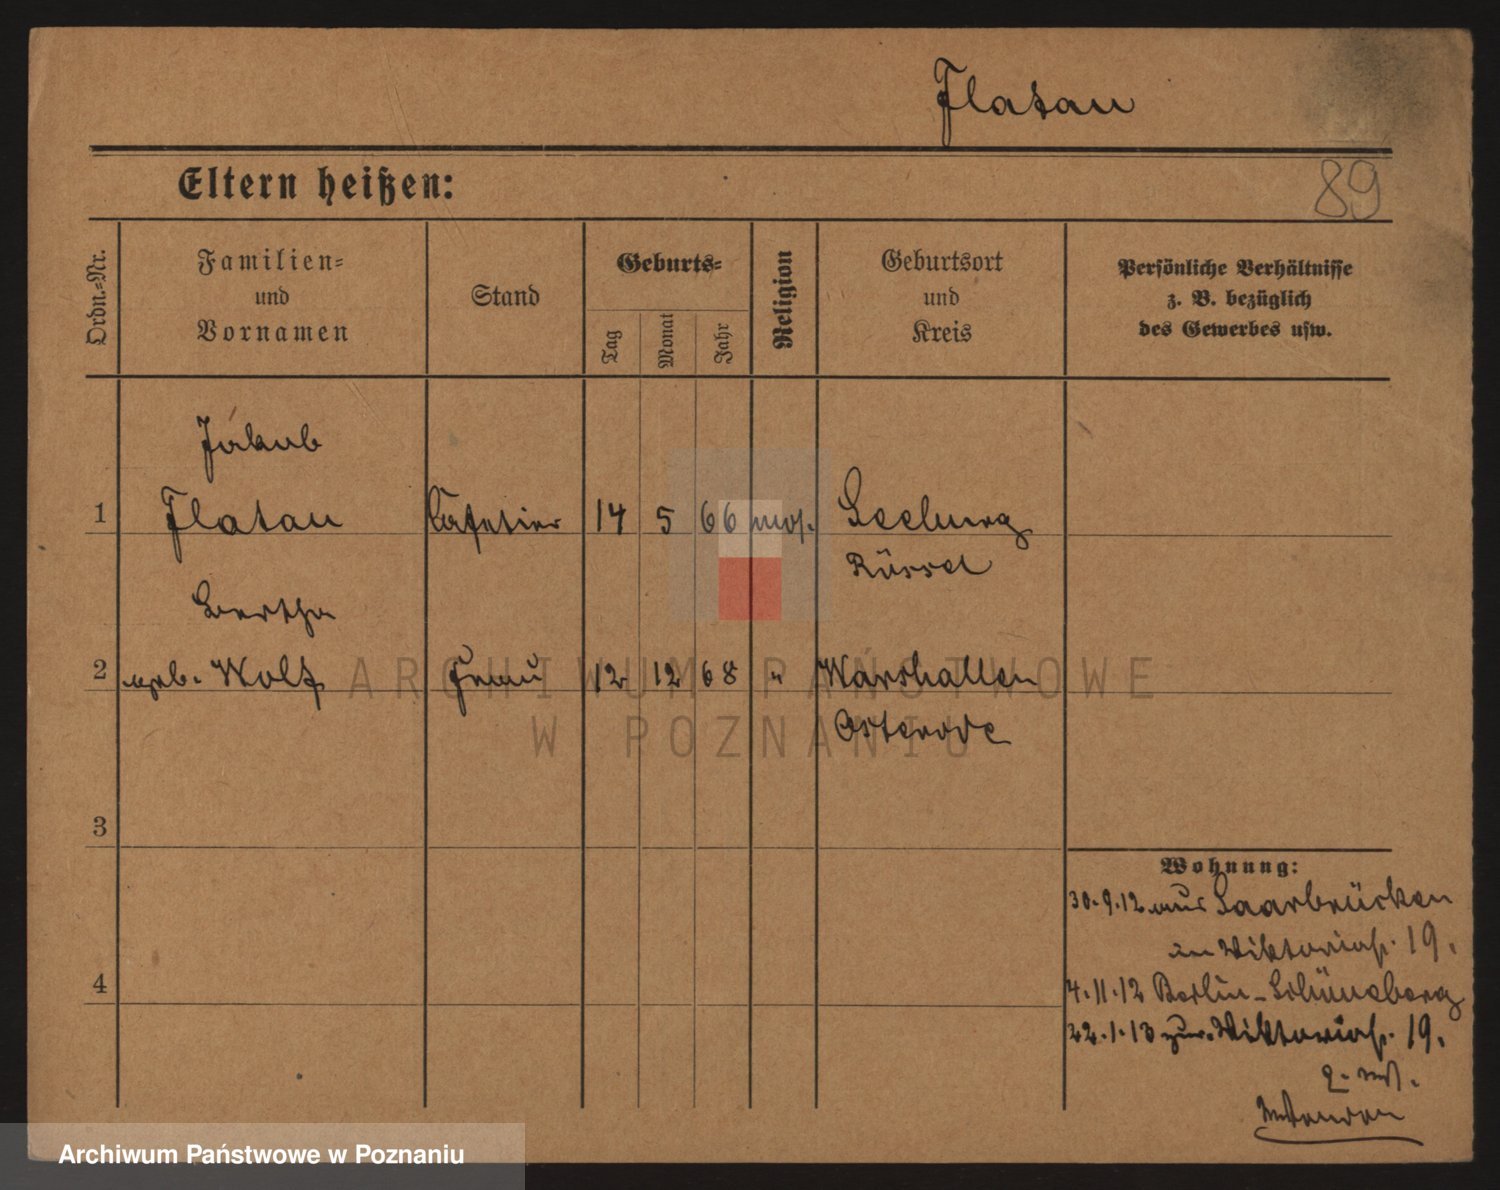 Flatau
89
Eltern heißen:
Ordn.-Nr.
Familien-
und
Vornamen
Stand
Geburts-
Tag
Monat
Jahr
Religion
Geburtsort
und
Kreis
Persönliche Verhältnisse
z. B. bezüglich
des Gewerbes usw.
Jakob
1 Flatau Cafetier 14 5 66 mos. Seeburg
Rössel
Bertha
2 geb. Wolf Frau 12 12 68 " Warshallen
Osterode
3
4
Wohnung:
30.9.12 aus Saarbrücken
in Viktoriastr. 19.
4.11.12 Berlin-Schöneberg
22.1.13 zur. Viktoriastr. 19.
ARCHIWUM PAŃSTWOWE
W POZNANIU
Archiwum Państwowe w Poznaniu